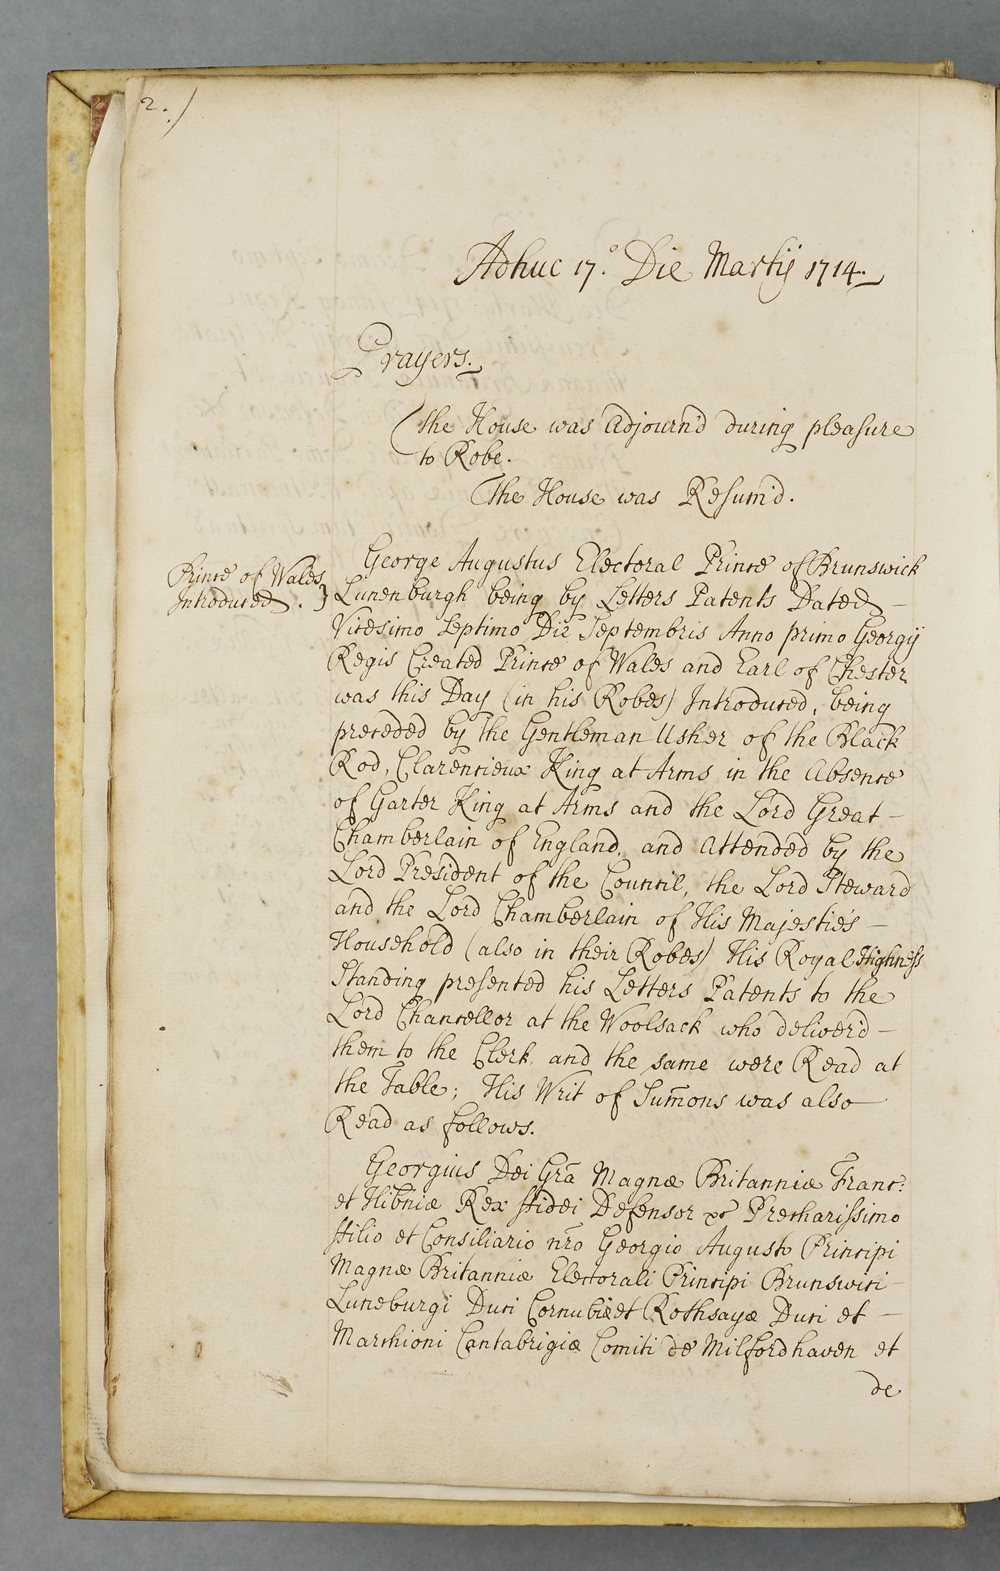 2.)
Adhuc 17.° Die Martij 1714.
Prayers.
The House was Adjourn'd during pleasure
to Robe.
The House was Resum'd.
Prince of Wales
Introduced. }
George Augustus Electoral Prince of Brunswick
Lunenburgh being by Letters Patents Dated –
Vicesimo Septimo Die Septembris Anno primo Georgij
Regis Created Prince of Wales and Earl of Chester
was this Day (in his Robes) Introduced, being
preceded by the Gentleman Usher of the Black
Rod, Clarencieux King at Arms in the Absence
of Garter King at Arms and the Lord Great –
Chamberlain of England, and Attended by the
Lord President of the Council, the Lord Steward
and the Lord Chamberlain of His Majestie's –
Household (also in their Robes) His Royal Highness
Standing presented his Letters Patents to the
Lord Chancellor at the Woolsack who deliver'd –
them to the Clerk, and the same were Read at
the Table; His Writ of Sum̃ons was also
Read as follows.
Georgius Dei Grã Magnæ Britanniæ Franc:
et Hibniæ Rex ffidei Defensor &c Precharissimo
ffilio et Consiliario nr̃o Georgio Augusto Principi
Magnæ Britanniæ Electorali Principi Brunswici –
Luneburgi Duci Cornubiæ et Rothsayæ Duci et –
Marchioni Cantabrigiæ Comiti de Milfordhaven et
de